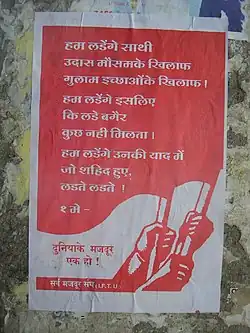 हम लडेंगे साथी
उदास मौसमके खिलाफ
गुलाम इच्छाओंके खिलाफ !
हम लडेंगे इसलिए
कि लडे बगैर
कुछ नही मिलता ।
हम लडेंगे उनकी याद में
जो शहिद हुए,
लडते लडते !
१ मे -
दुनियाके मजदूर
एक हो !
सर्व मजदूर संघ (I.F.T.U.)